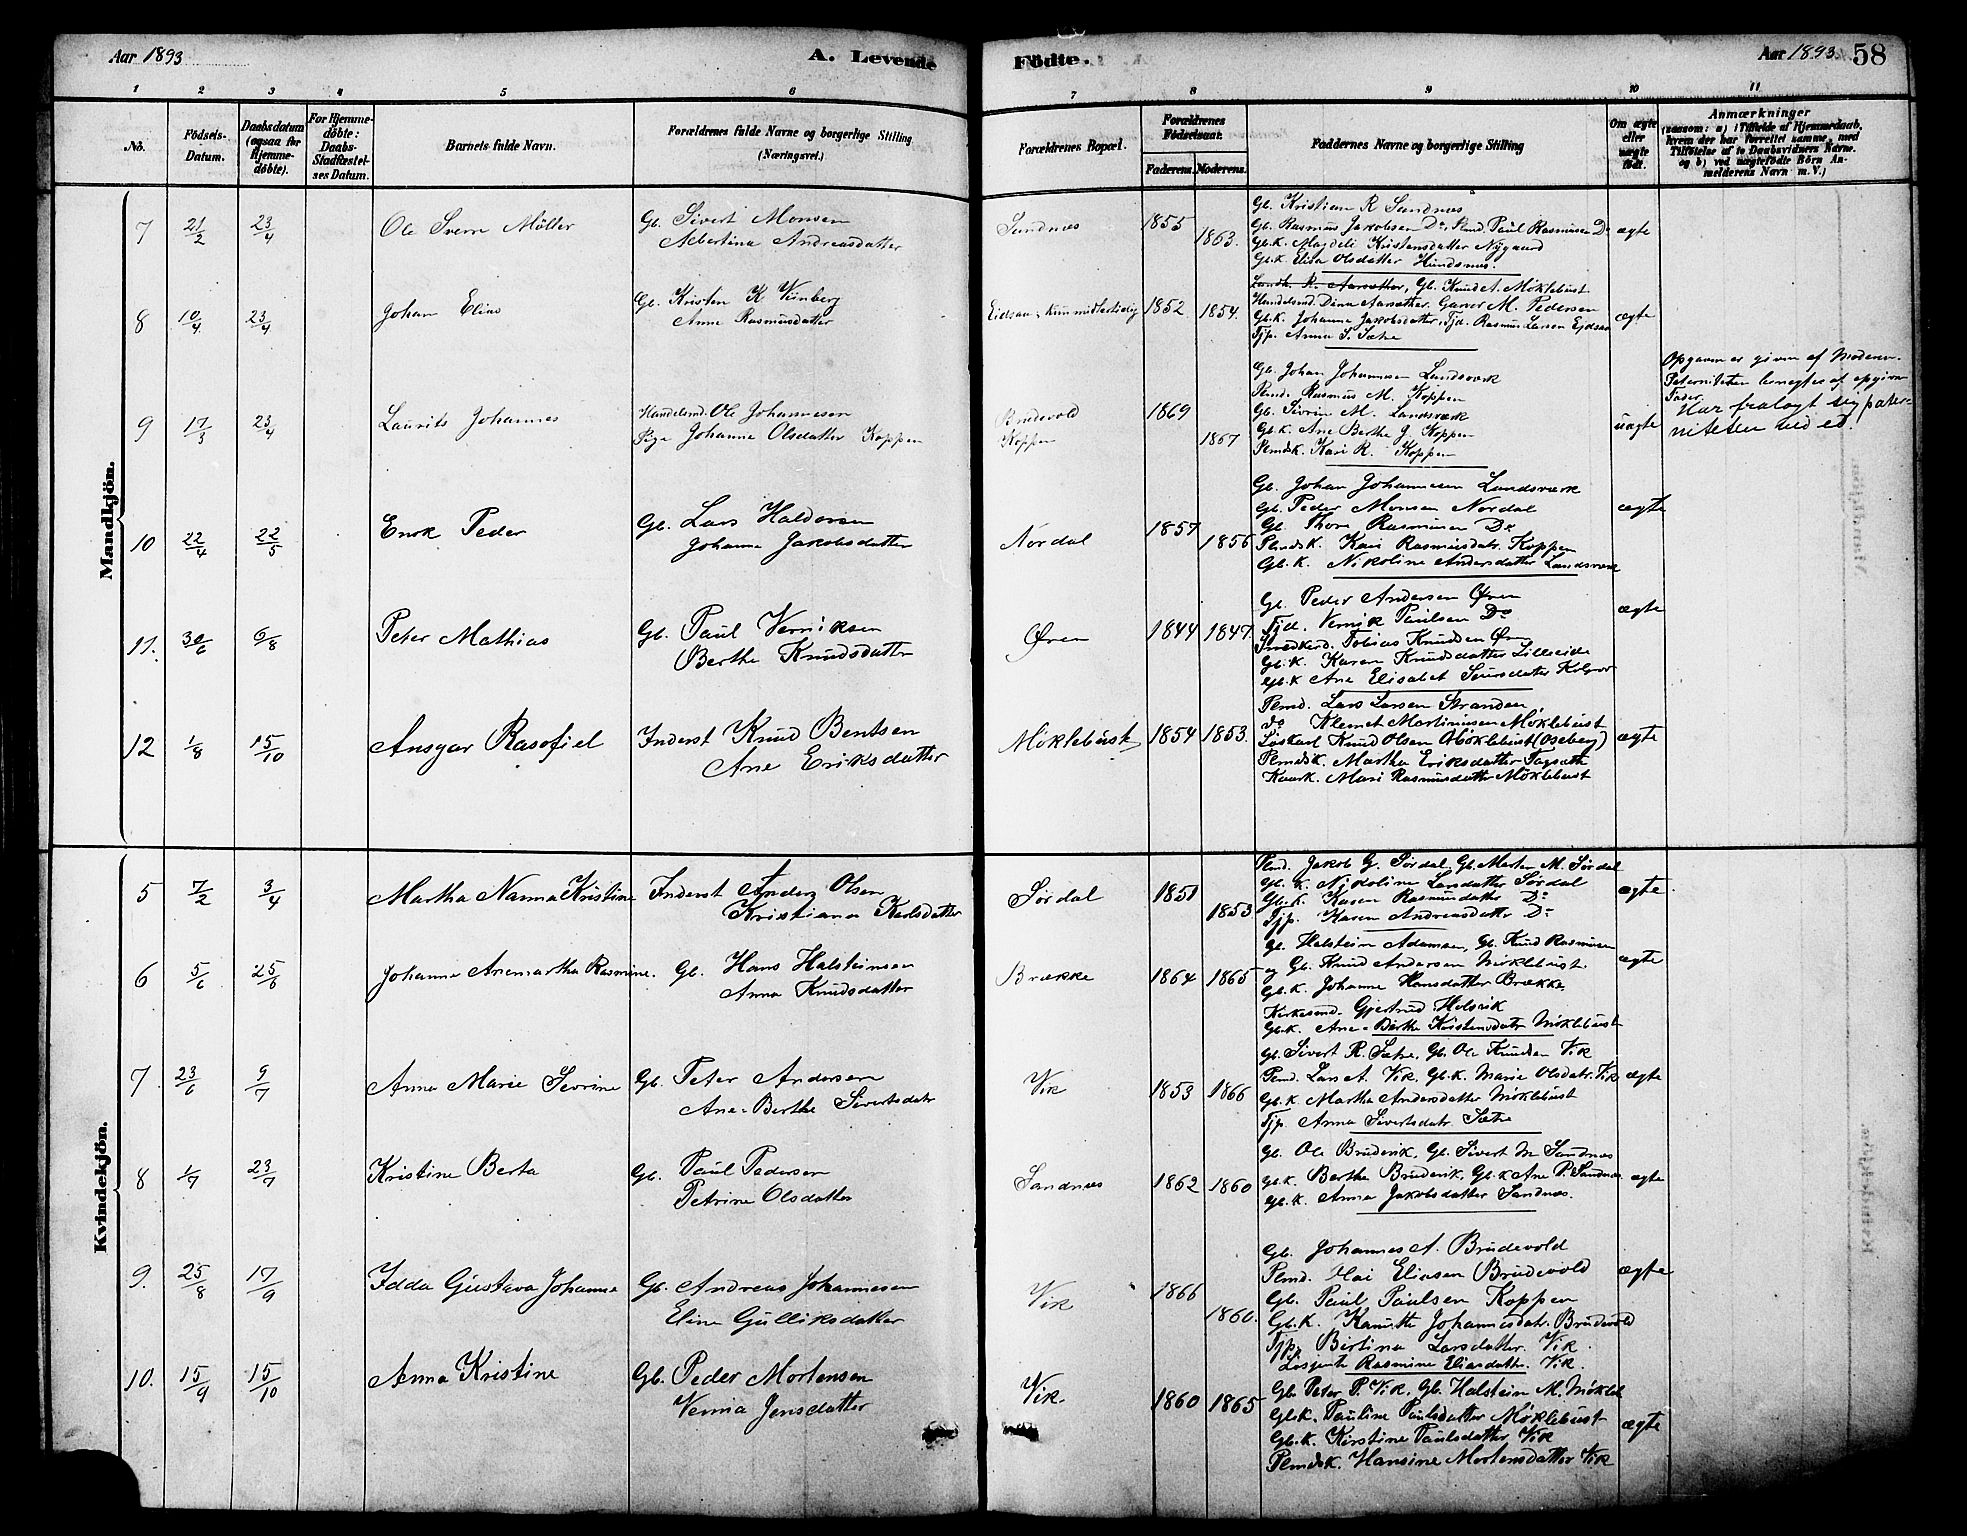 Aar 1893
A. Levende
Födte.
Aar 1893. 58
1 2 3 4 5 6 7 8 9 10 11
No.
Födsels-
Datum.
Daabsdatum
(ogsaa for
Hjemme-
döbte).
For Hjemme-
döbte:
Daabs-
Stadfæstel-
ses Datum.
Barnets fulde Navn.
Forældrenes fulde Navne og borgerlige Stilling
(Næringsvei.)
Forældrenes Bopæl.
Forældrenes
Födselsaar.
Faderens. Moderens.
Faddernes Navne og borgerlige Stilling
Om ægte
eller
uægte
född.
Anmærkninger
(saasom: a) i Tilfælde af Hjemmedaab,
hvem der har forrettet samme, med
Tilföielse af to Daabsvidners Navne.
og b) ved uægtefödte Börn An-
melderens Navn m. V.)
Mandkjön.
7 21/2 23/4 Ole Sverre Möller
Gb. Sivert Monsen
Albertina Andreasdatter
Sandnes 1855 1863.
Gb. Kristian R Sandnes
Gb. Rasmus Jakobsen Do, Pmd. Paul Rasmusen Do
Gb.K. Magdeli Kristensdatter Nygaard
Gb.K. Elisa Olsdatter Hundsnes.
ægte
8 10/4 23/4 Johan Elias
Gb. Kristen K Viinberg
Anne Rasmusdatter
Eidsaa, 1852 1854.
Landh. R. Aarsæther, Gb. Knud A. Möklebust
Handelsmd. Dina Aarsæther. Garver M. Pedersen
Gb.K. Johanna Jakobsdatter, Tjd. Rasmus Larsen Ejdsaa
Tjp. Anna S. Sætre
ægte
9 17/3 23/4 Laurits Johannes
Handelsmd. Ole Johannesen
Pige Johanne Olsdatter Koppen
Brudevold
Koppen
1869 1867
Gb. Johan Johannesen Landsværk
Pmd. Rasmus M. Koppen
Gb. Sivrin M. Landsværk
Gb.K. Ane Berthe J. Koppen
Pmdsk. Kari R. Koppen
uægte
Opgaven er given af Moderen.
Paterniteten benegtes af opgiven
Fader.
Har fralagt sig pater-
niteten ved ed.
10 22/4 22/5 Enok Peder
Gb. Lars Haldorsen
Johanne Jakobsdatter
Nordal 1857 1856
Gb. Johan Johannesen Landsværk
Gb. Peder Monsen Nordal
Gb. Thore Rasmusen Do
Pmdsk. Kari Rasmusdatr. Koppen
Gb.K. Nikoline Andersdatter Landsværk
ægte
11. 30/6 6/8 Peter Mathias
Gb. Paul Verniksen
Berthe Knudsdatter
Øren 1844 1847.
Gb. Peder Andersen Øren
Tjd. Vernik Paulsen Do
Tobias Knudsen Øren
Gb.K. Karen Knudsdatter Lilleeide
Gb.K Ane Elisabet
ægte
12 1/8 15/10 Ansgar Rasofiel
Inderst Knud Bentsen
Ane Eriksdatter
Möklebust 1854 1853.
Pmd. Lars Larsen Stranden,
do Klemet Martinusen Möklebust
Löskarl Knud Olsen Möklebust (Oseberg)
Pmdsk. Martha Eriksdatter
Kaark. Mari Rasmusdatter Möklebust
ægte
Kvindekjön.
5 7/2 3/4 Martha Nanna Kristine
Inderst Anders Olsen
Kristiana Karlsdatter
Sördal 1851 1853
Pmd. Jakob G. Sördal, Gb. Morten M. Sördal
Gb.K. Nikoline Larsdatter Sördal
Gb.K. Karen Rasmusdatter Do
Tjp. Karen Andreasdatter Do
ægte
6 5/6 25/6 Johanne Anemartha Rasmine.
Gb. Hans Halsteinsen
Anna Knudsdatter
Brække 1864 1865
Gb. Halstein Adamsen, Gb. Knud Rasmusen
og Gb. Knud Andersen Möklebust.
Gb.K. Johanne Hansdatter Brække
Kirkesmd. Gjertrud Holsvik
Gb.K. Ane-Berthe Kristensdatr Möklebust
ægte
7 23/6 9/7 Anna Marie Sevrine
Gb. Peter Andersen
Ane-Berthe Sivertsdatr
Vik 1853 1866
Gb. Sivert R. Sætre, Gb. Ole Knudsen Vik
Pmd. Lars A. Vik, Gb.K. Marie Olsdatr. Vik
Gb.K Martha Andersdatter Möklebust
Tjp. Anna Sivertsdatr. Sætre
ægte
8 1/7 23/7 Kristine Berta
Gb. Paul Pedersen
Petrine Olsdatter
Sandnes 1862 1860
Gb. Ole Brudevik, Gb. Sivert M Sandnes
Gb.K. Berthe Brudevik, Gb.K Ane P. Sandnes
Gb.K. Anna Jakobsdatter Sandnes.
ægte
9. 25/8 17/9 Idda Gustava Johanna
Gb. Andreas Johannesen
Eline Gulliksdatter
Vik 1866 1860.
Gb. Johannes A. Brudevold
Pmd. Eliasen Brudevold
Gb. Paul Paulsen Koppen
Gb.K. Johannesdatr. Brudevold
Tjp. Bertina Larsdatter Vik.
Løsjente Rasmine Eliasdattr. Vik.
ægte
10. 15/9 15/10 Anna Kristine
Gb. Peder Mortensen
Verina Jensdatter
Vik. 1860 1865
Gb. Peter P. Vik, Gb. Halstein M. Möklebl
Gb.K. Pauline Paulsdatter Möklebust
Gb.K. Kirstine Paulsdatter Vik
Pmdsk. Hansine Mortensdatter Vik
ægte